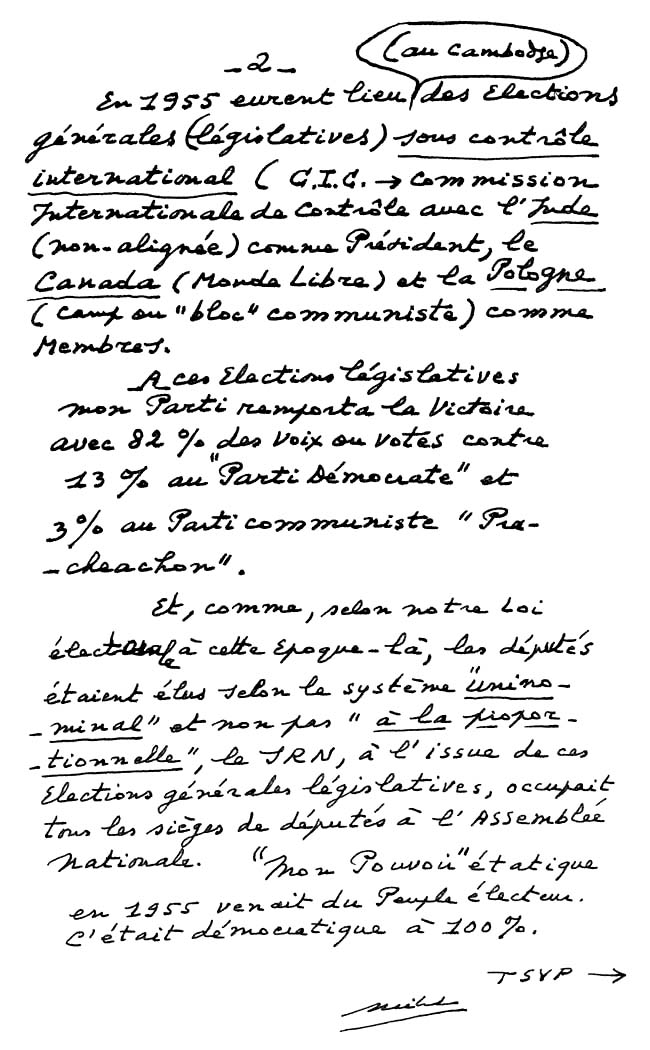 (au Cambodge)
- 2 -
En 1955 eurent lieu des Elections
générales (législatives) sous contrôle
international ( C.I.C. → Commission
Internationale de Contrôle avec l'Inde
(non-alignée) comme Président, le
Canada (Monde Libre) et la Pologne
(camp ou "bloc" communiste) comme
Membres.
A ces Elections législatives
mon Parti remporta la Victoire
avec 82 % des Voix ou votes contre
13 % au "Parti Démocrate" et
3 % au Parti communiste "Pra-
-cheachon".
Et, comme, selon notre Loi
électorale à cette Epoque-là, les députés
étaient élus selon le système "unino-
-minal" et non pas "à la propor-
-tionnelle", le SRN, à l'issue de ces
Elections générales législatives, occupait
tous les sièges de députés à l'Assemblée
Nationale. "Mon Pouvoir" étatique
en 1955 venait du Peuple électeur.
C'était démocratique à 100 %.
TSVP →